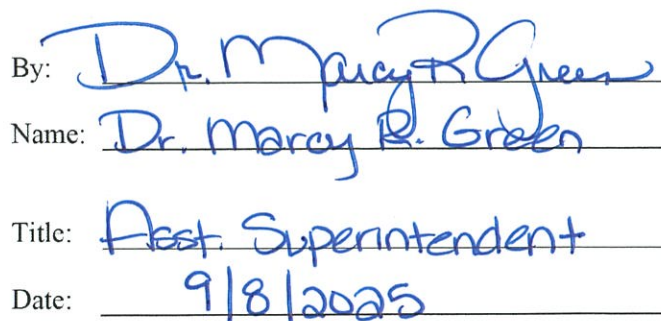 By: Dr. Marcy R Green
Name: Dr. Marcy R. Green
Title: Asst. Superintendent
Date: 9/8/2025